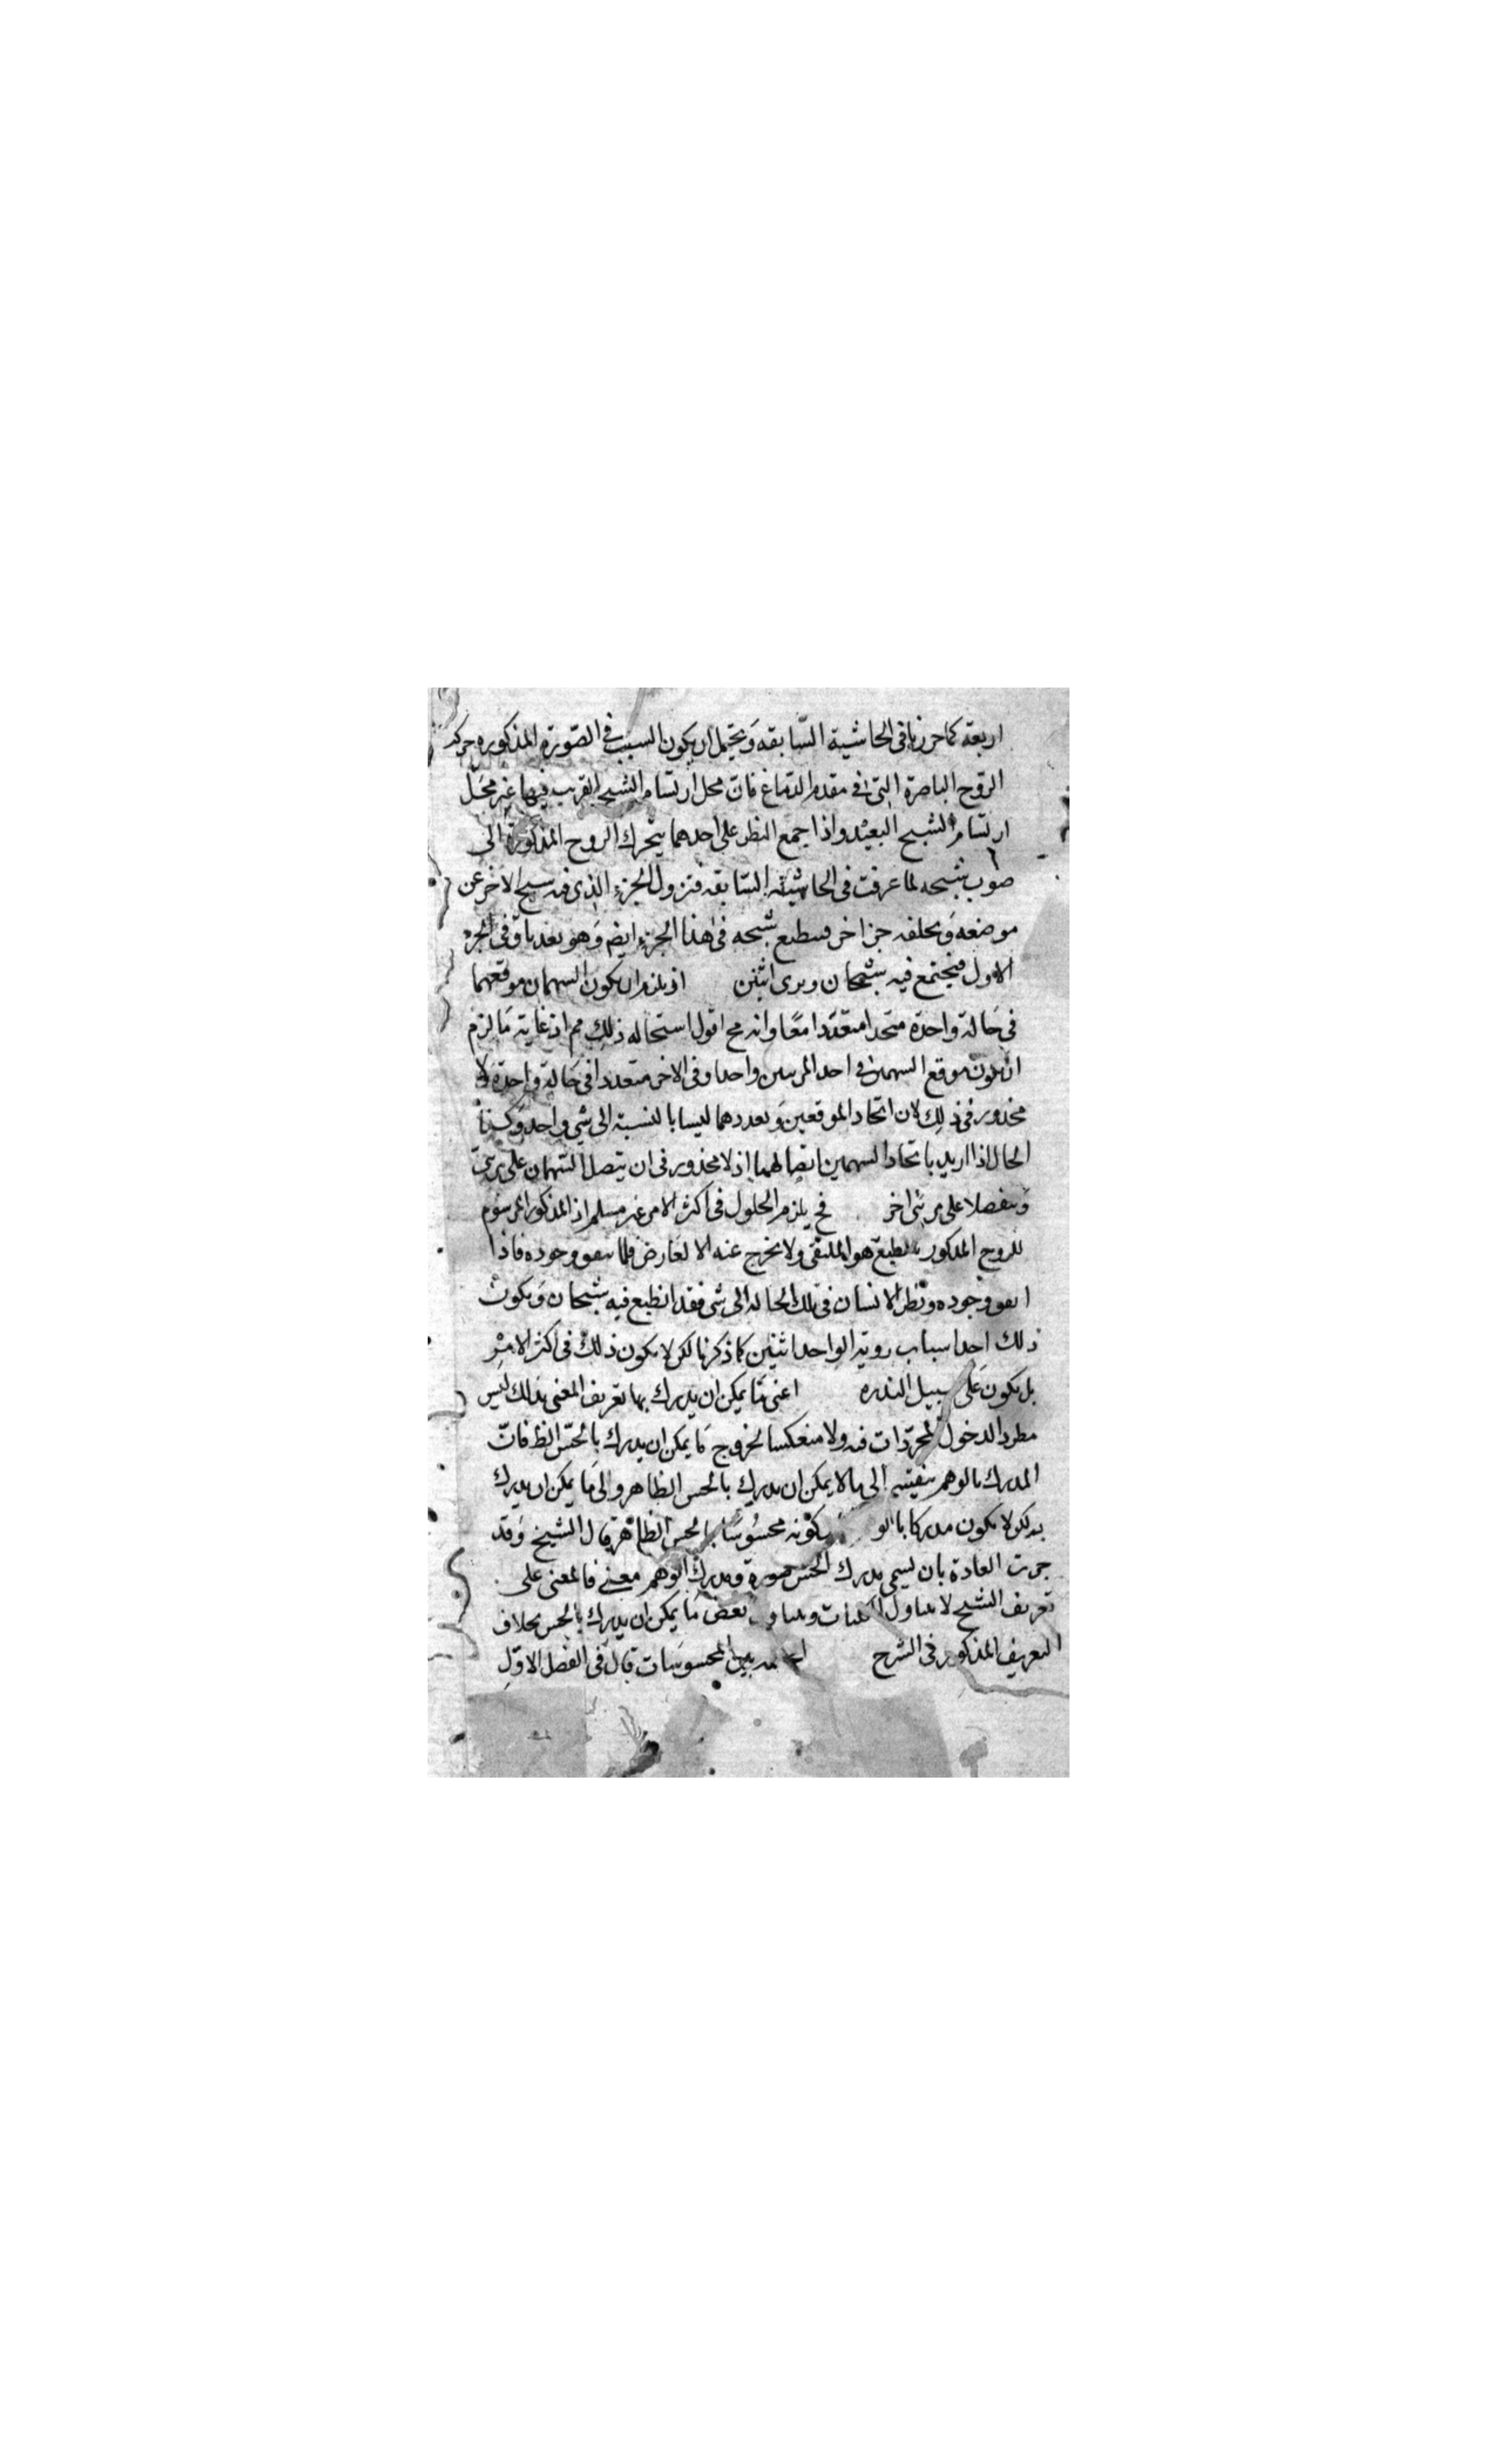 اربعة كما حررنا فى الحاشية السّابقه وَيحتمل ان يكون السبب فى الصّورة المذكوره حركه
الرّوح الباصرة التى فى مقدم الدّماغ فانّ محل ارتسام الشبح القريب فيها غير محَلّ
ارتسام الشبح البعيْد واذا جمع النظر على احدهما يتحرك الروح المذكورة الى
صوب شبحه لما عرفت فى الحاشيَة السّابقه فتزول الجزء الذى فيه شبح الاخر عن
موضعه وَيخلفه جزا اخر فينطبع شبحه فى هذا الجزء ايضا وَهو بعد باق فى الجزء
الاول فيجتمع فيه شبحان ويرى اثنين اذ يلزم ان يكون السهمان موقعهما
فى حَالة واحدة متحدا متعدّدا معًا وانه مح اقول استحاله ذلك مم اذ غاية مَا لزم
ان يكون موقع السهمين فى احد المرئيين واحدا وفى الاخر متعددا فى حَالة واحدة ولا
محذور فى ذلك لان اتحاد الموقعين وَتعددهما ليسا بالنسبة الى شى واحد وَكذا
الحال اذا اريد باتحاد السهمين اتصالهما اذ لا محذور فى ان يتصل السّهمان على مرئىّ
وينفصلا على مرئى اخر فح يلزم الحلول فى اكثر الامر غير مسلم اذ المذكور المرسوم
للروح المذكور بالطبع هو الملتقى ولا يخرج عنه الا لعَارض قلما يتفق وجوده فاذا
اتفق وجوده ونظر الانسان فى تلك الحاله الى شى فقد انطبع فيه شبحان وَيكون
ذلك احد اسباب روية الواحد اثنين كما ذكرنا لكن لا يكون ذلك فى اكثر الامر
بل يكون عَلى سبيل الندره اعنى مَا يمكن ان يدرك بها تعريف المعنى بذلك ليس
مطردا لدخول المجرّدات فيه ولا منعكسا لخروج مَا يمكن ان يدرك بالحسّ الظ فانّ
المدرك بالوهم ينقسم الى ما لا يمكن ان يدرك بالحس الظاهر والى مَا يمكن ان يدرك
به لكن لا يكون مدركا بالو يكونه محسُوسًا بالحس الظاهر قال الشيخ وَقد
جرت العادة بان يسمى مدرك الحس صورة ومدرك الوهم معنى فالمعنى على
تعريف الشيخ لا يتناول الكليات ويتناول بعض مَا يمكن ان يدرك بالحس بخلاف
التعريف المذكور فى الشرح بين المحسوسَات قال فى الفصل الاوّل